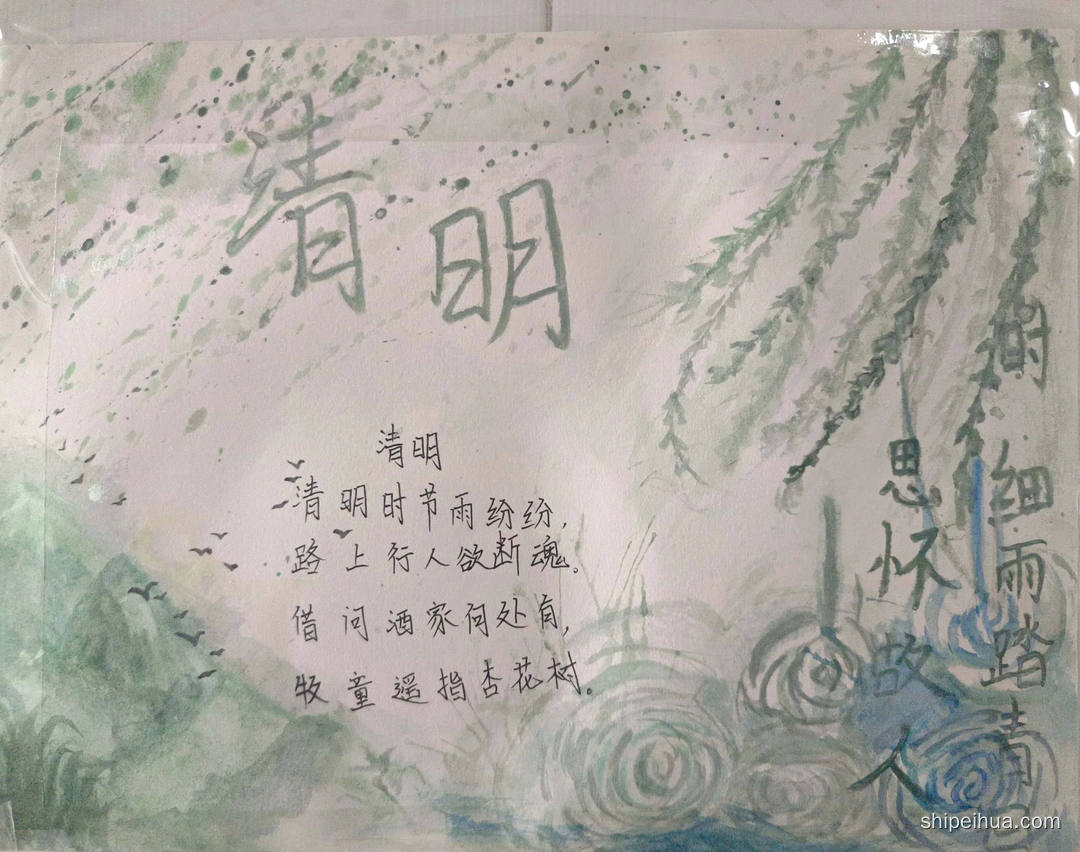 清明
清明
清明时节雨纷纷,
路上行人欲断魂。
借问酒家何处有,
牧童遥指杏花树。
细雨踏青
思怀故人
shipeihua.com